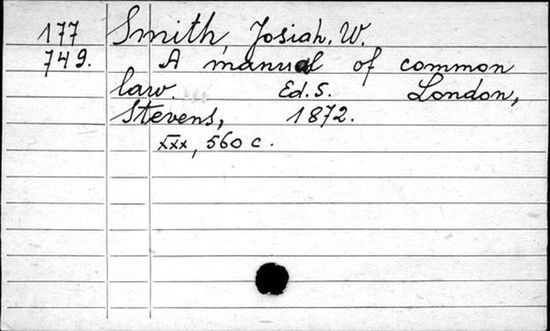 177 Smith, Josiah. W.
749. A manual of common
law. Ed. 5. London,
Stevens, 1872.
xxx, 560 c.